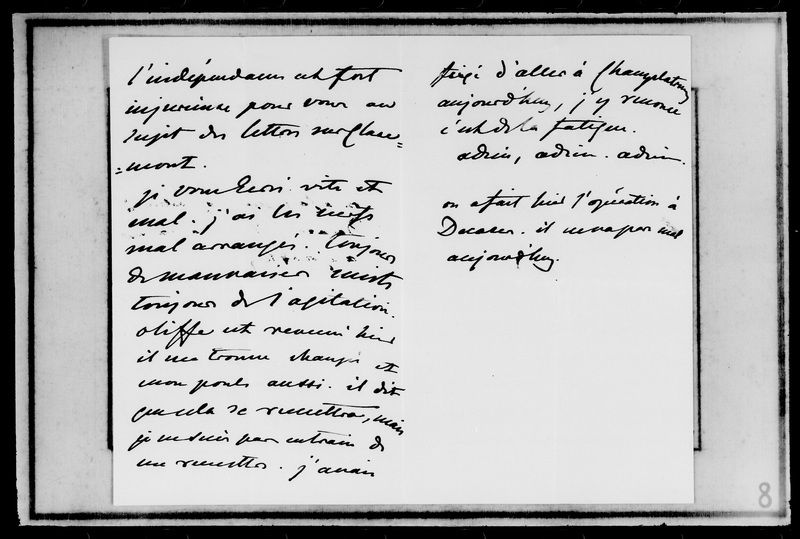 l'indépendance est fort
injurieuse pour vous au
sujet des lettres sur Clare=
=mont.
je vous écris vite et
mal. j'ai les nerfs
mal arrangés. toujours
de mauvaises nuits
toujours de l'agitation.
oliffe est revenu hier
il me trouve changé et
mon pouls aussi. il dit
que cela se remettra, mais
je ne suis pas en train de
me remettre. j'avais
d'aller à Champlatreux
aujourd'huy, j'y renonce
c'est de la fatigue.
adieu, adieu. adieu.
on a fait hier l'opération à
Decazes. il ne va pas mal
aujourd'huy.
8